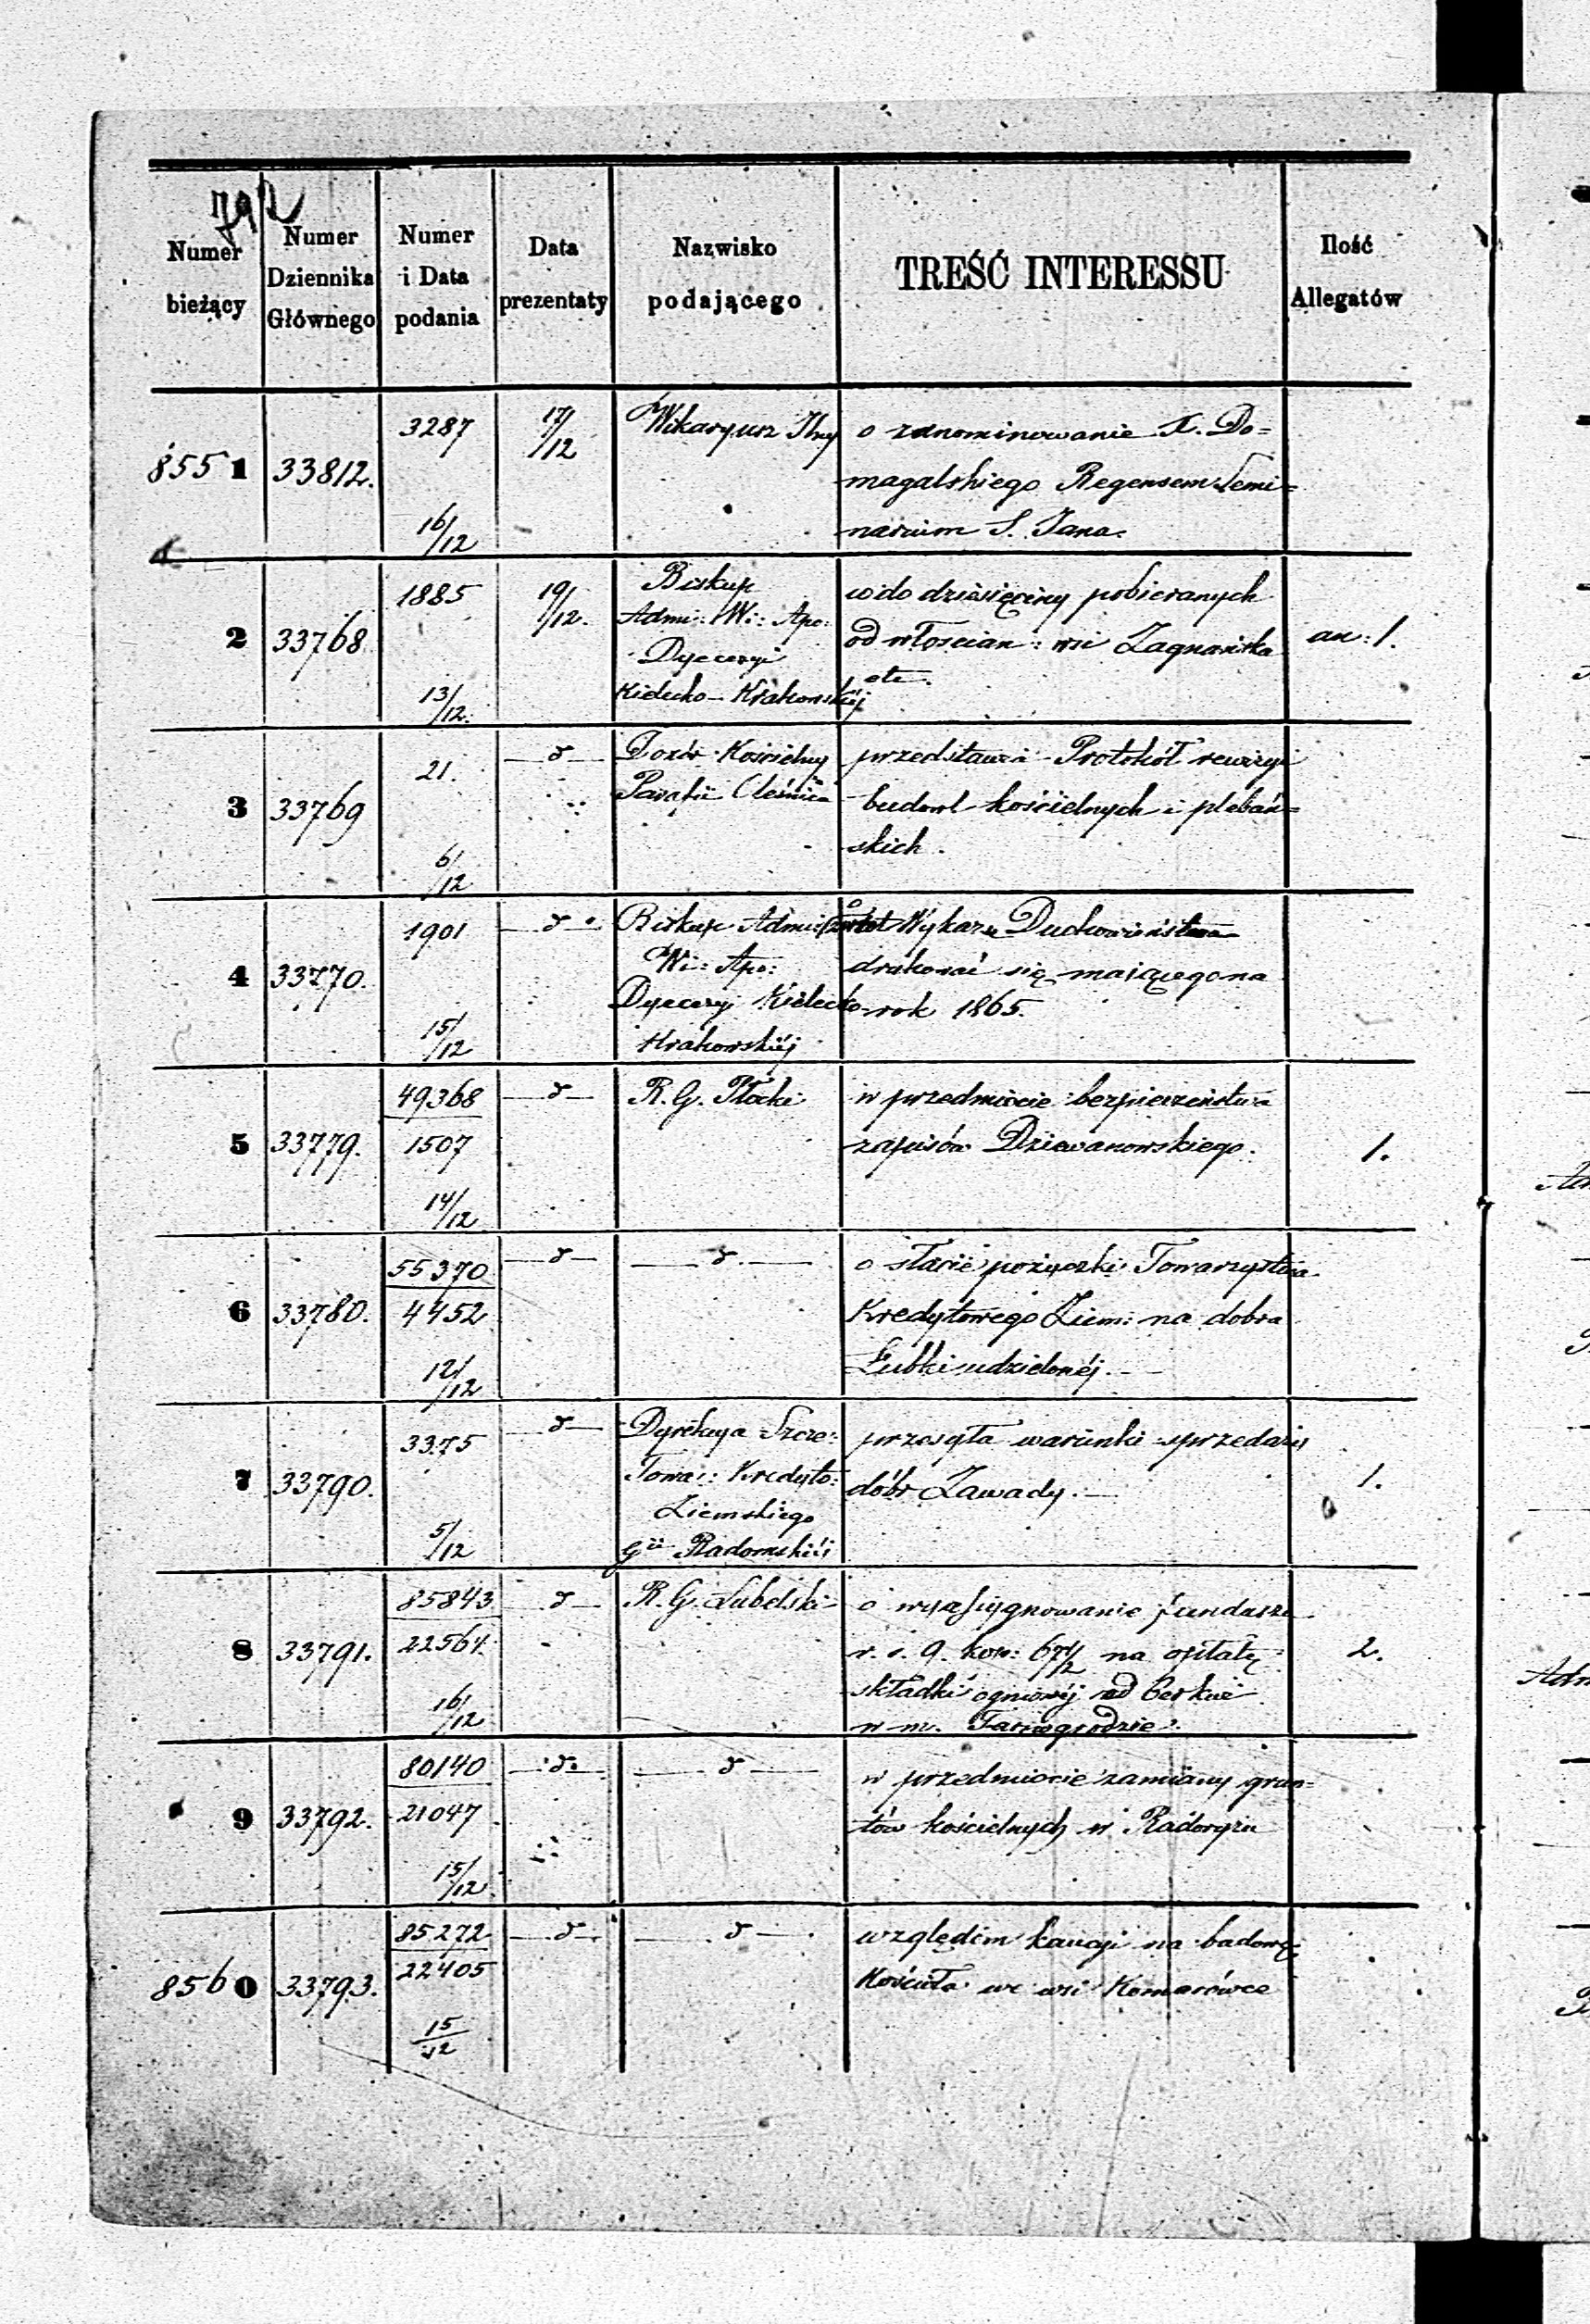 792
Numer bieżący
Numer Dziennika Głównego
Numer i Data podania
Data prezentaty
Nazwisko podającego
TREŚĆ INTERESSU
Ilość Allegatów
8551 33812. 3287 16/12 17/12
Wikaryusz
o zanominowanie X. Do=
magalskiego Regensem Semi=
narium S. Jana.
2 33768 1885 13/12. 19/12.
Biskup
Admi: Wi: Apo:
Dyecezyi
Kielecko-Krakowskiéj
wdo dziesięciny pobieranych
od włościan: wsi Zagnańska
etc.
an: 1.
3 33769 21. 6/12 — d —
Dozór Kościelny
Parafii Oleśnica
przedstawia Protokół rewizyi
budowl kościelnych i plebań=
skich.
4 33770. 1901 15/12 — d —
Biskup Admi:
Wi: Apo:
Dyecezyi Kielecko-
Krakowskiéj
zwrot Wykazu Duchowieństwa
drukować się mającego na
rok 1865.
5 33779. 49368 1507 14/12 — d —
R. G. Płocki
w przedmiocie bezpieczeństwa
zapisów Dziewanowskiego.
1.
6 33780. 55370 4452 12/12 — d — — d —
o stacie pożyczki Towarzystwa
Kredytowego Ziem: na dobra
Łubki udzielonéj. —
7 33790. 3375 5/12 — d —
Dyrekcya Szcze:
Towa: Kredyto:
Ziemskiego
Gii Radomskiéj
przesyła warunki sprzedaży
dóbr Zawady. —
1.
8 33791. 85843 22564. 16/12 — d —
R. G. Lubelski
o wyasygnowanie funduszu
r. s. 9. kop: 67 1/2 na opłatę
składki ogniowéj od Cerkwi
w m. Tarnogrodzie.
2.
9 33792. 80140 21047 15/12 — d — — d —
w przedmiocie zamiany grun=
tów kościelnych w Radoryżu
8560 33793. 85272 22405 15/12 — d — — d —
względem kaucyi na budowę
Kościoła we wsi Komarówce